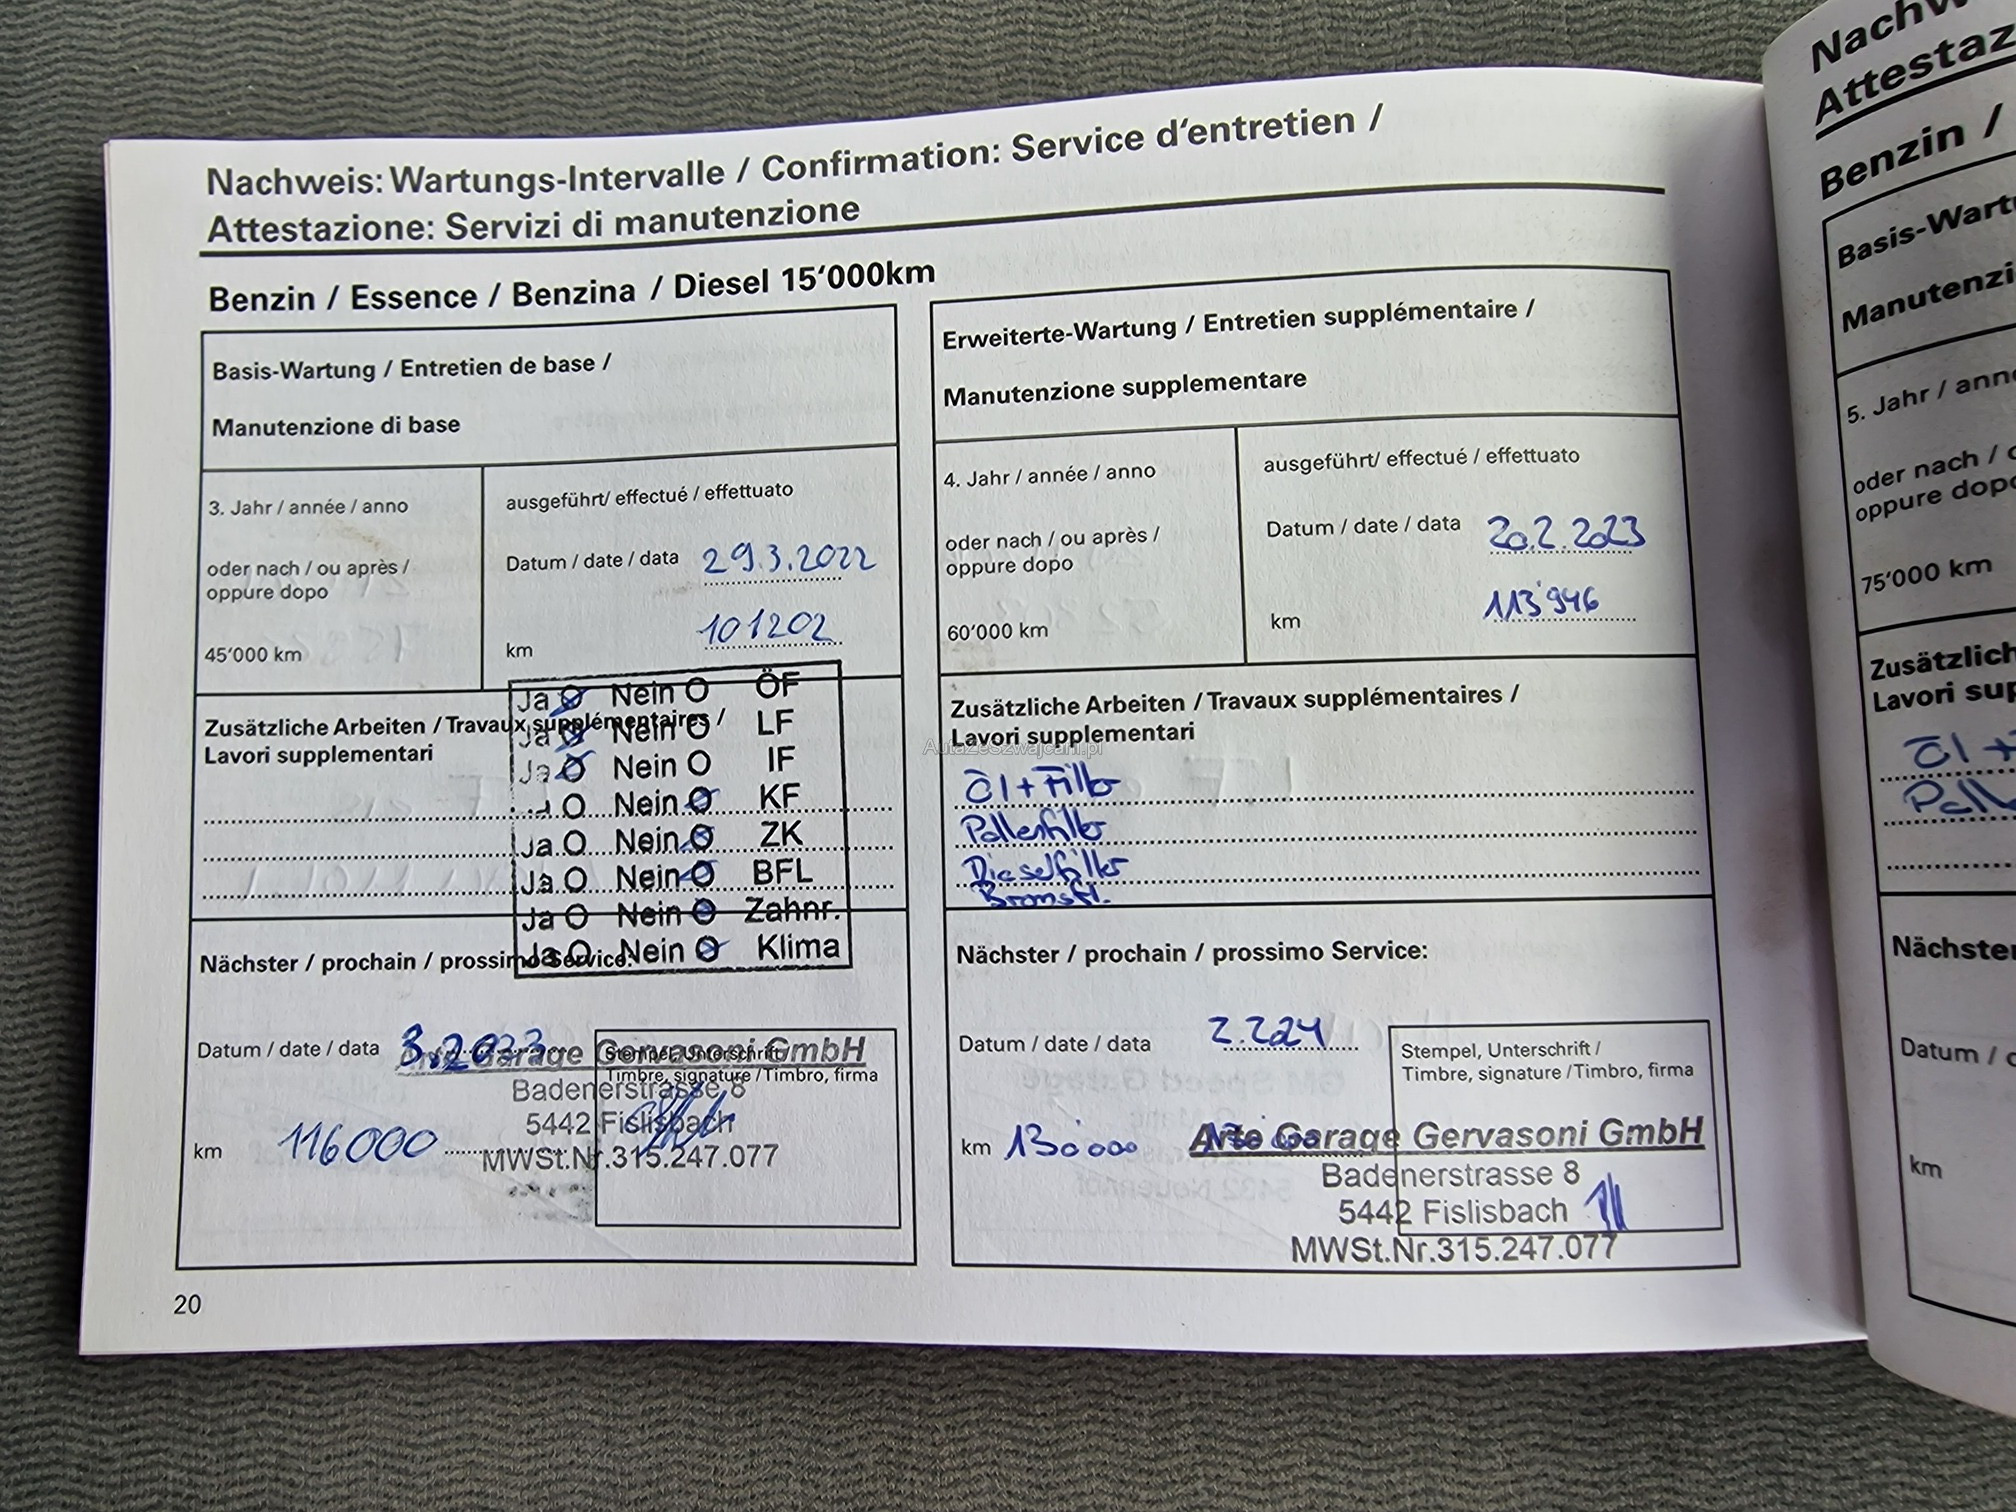 Nachweis: Wartungs-Intervalle / Confirmation: Service d'entretien /
Attestazione: Servizi di manutenzione
Benzin / Essence / Benzina / Diesel 15'000km
Basis-Wartung / Entretien de base /
Manutenzione di base
3. Jahr / année / anno
oder nach / ou après /
oppure dopo
45'000 km
ausgeführt/ effectué / effettuato
Datum / date / data 29.3.2022
km 101202
Zusätzliche Arbeiten / Travaux supplémentaires /
Lavori supplementari
Ja O Nein O ÖF
Ja O Nein O LF
Ja O Nein O IF
O Nein O KF
Ja O Nein O ZK
Ja O Nein O BFL
Ja O Nein O Zahnr.
Ja O Nein O Klima
Nächster / prochain / prossimo Service:
Datum / date / data 3.2023
km 116000
Stempel, Unterschrift /
Timbre, signature / Timbro, firma
Arte Garage Gervasoni GmbH
Badenerstrasse 8
5442 Fislisbach
MWSt.Nr.315.247.077
20
Erweiterte-Wartung / Entretien supplémentaire /
Manutenzione supplementare
4. Jahr / année / anno
oder nach / ou après /
oppure dopo
60'000 km
ausgeführt/ effectué / effettuato
Datum / date / data 20.2.2023
km 113'946
Zusätzliche Arbeiten / Travaux supplémentaires /
Lavori supplementari
AutazeSzwajcarii.pl
Öl + Filter
Pollenfilter
Dieselfilter
Bremsfl.
Nächster / prochain / prossimo Service:
Datum / date / data 2.2024
km 130'000
Stempel, Unterschrift /
Timbre, signature / Timbro, firma
Arte Garage Gervasoni GmbH
Badenerstrasse 8
5442 Fislisbach
MWSt.Nr.315.247.077
Benzin /
5. Jahr /
oder nach /
75'000 km
Öl +
Datum /
km